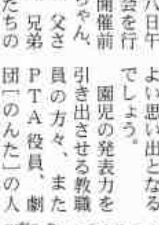 八日午
会を行
開催前
ちゃん、
父さ
兄弟
たちの
よい思い出となる
でしょう。
園児の発表力を
引き出させる教職
員の方々、また
ＰＴＡ役員、劇
団［のんた］の人